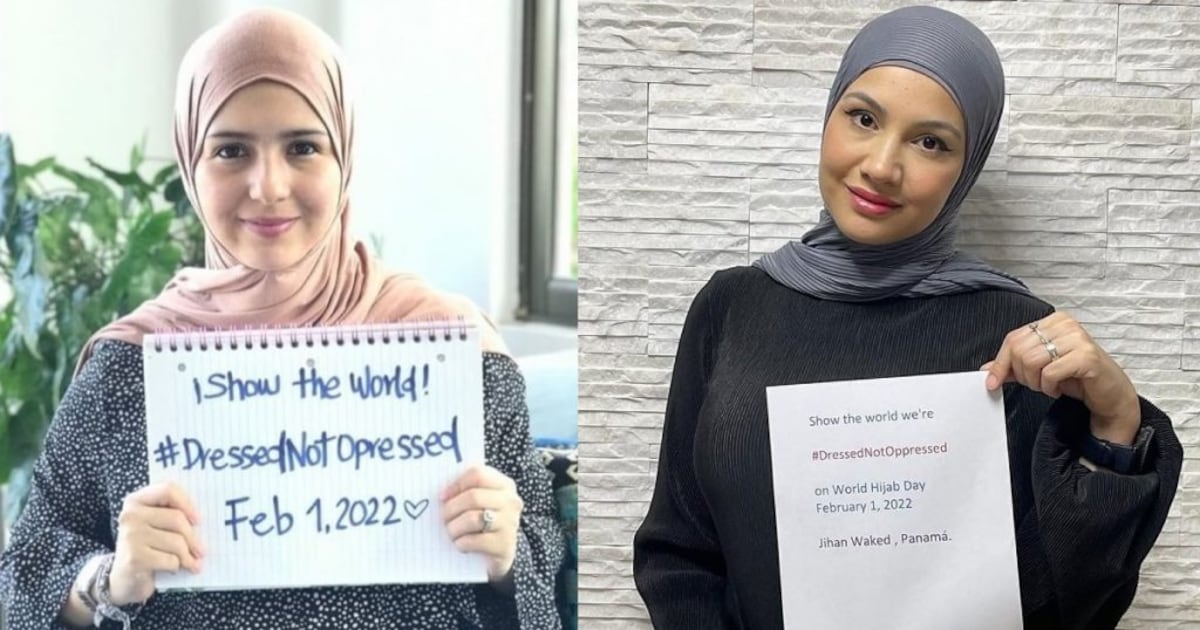 I Show the World!
#DressedNotOpressed
Feb 1, 2022♡
Show the world we're
#DressedNotOppressed
on World Hijab Day
February 1, 2022
Jihan Waked , Panamá.